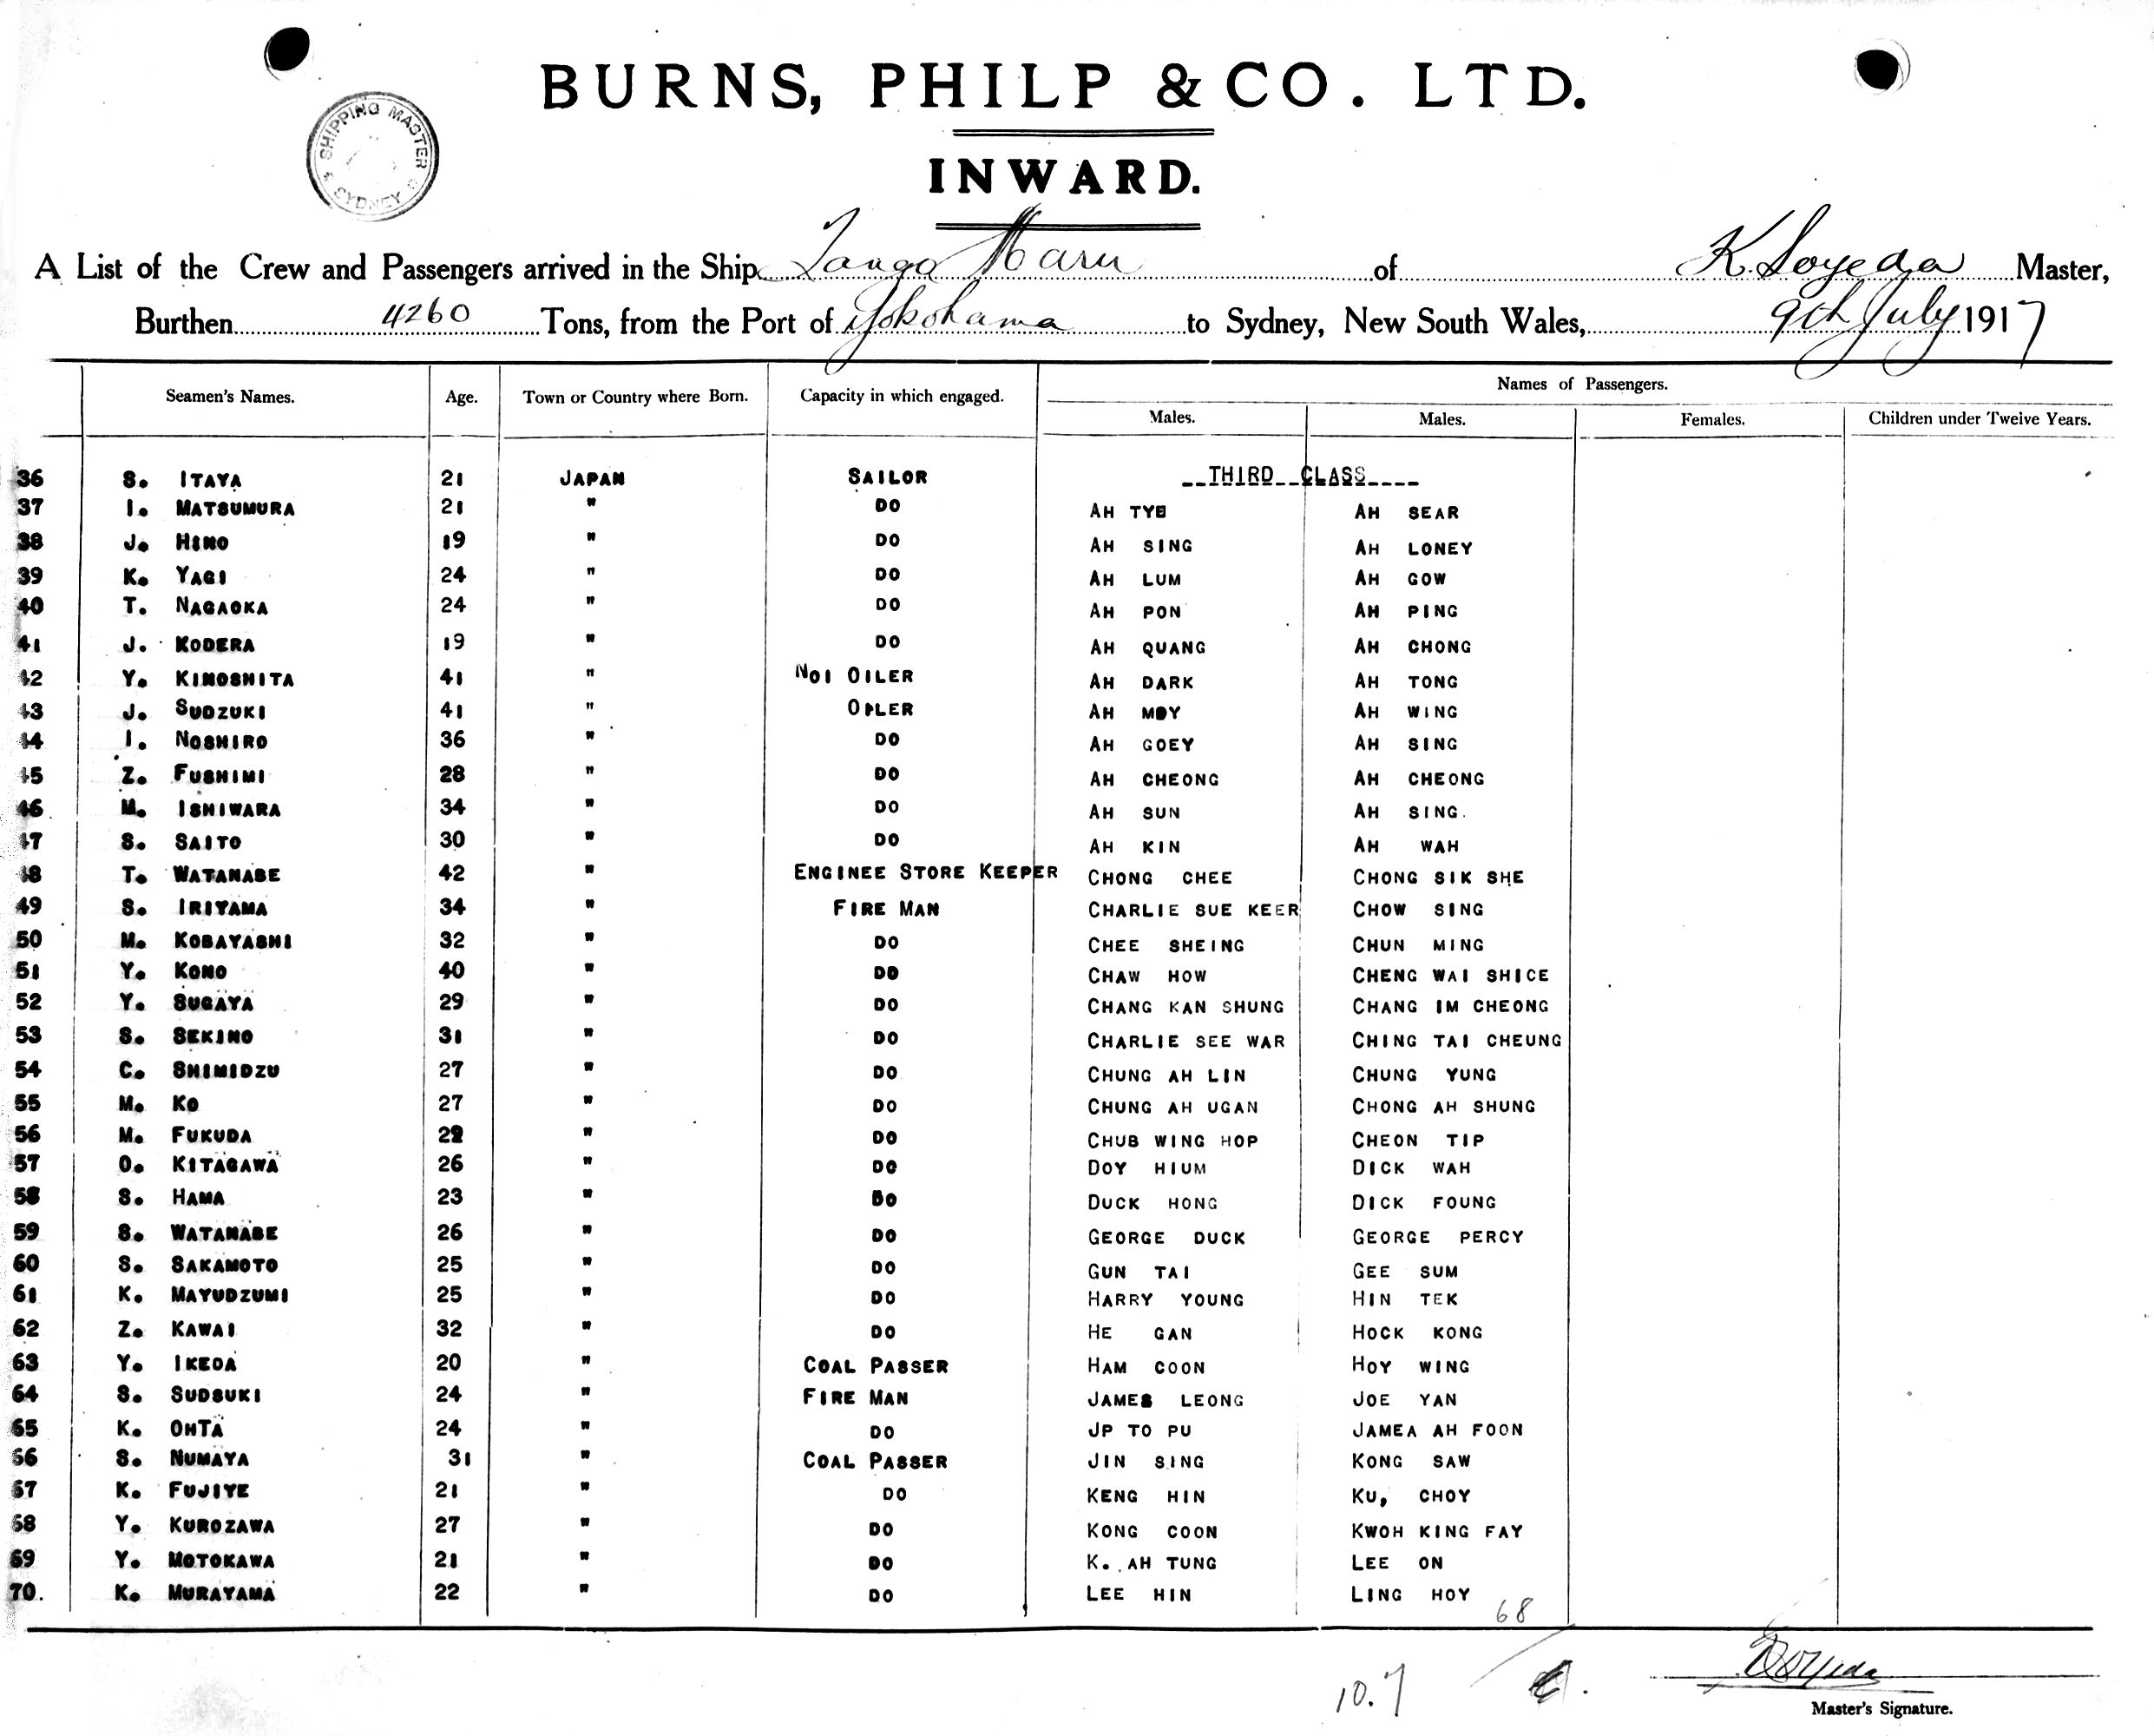 BURNS, PHILP & CO. LTD.
SHIPPING MASTER
SYDNEY
INWARD.
A List of the Crew and Passengers arrived in the Ship Tango Maru of K. Soyeda Master,
Burthen 4260 Tons, from the Port of Yokohama to Sydney, New South Wales, 9th July 1917
Seamen's Names. Age. Town or Country where Born. Capacity in which engaged. Names of Passengers.
Males. Males. Females. Children under Twelve Years.
36 S. ITAYA 21 JAPAN SAILOR --THIRD--CLASS----
37 I. MATSUMURA 21 " DO AH TYE AH SEAR
38 J. HINO 19 " DO AH SING AH LONEY
39 K. YAGI 24 " DO AH LUM AH GOW
40 T. NAGAOKA 24 " DO AH PON AH PING
41 J. KODERA 19 " DO AH QUANG AH CHONG
42 Y. KINOSHITA 41 " NO1 OILER AH DARK AH TONG
43 J. SUDZUKI 41 " OILER AH MOY AH WING
44 I. NOSHIRO 36 " DO AH GOEY AH SING
45 Z. FUSHIMI 28 " DO AH CHEONG AH CHEONG
46 M. ISHIWARA 34 " DO AH SUN AH SING.
47 S. SAITO 30 " DO AH KIN AH WAH
48 T. WATANABE 42 " ENGINEE STORE KEEPER CHONG CHEE CHONG SIK SHE
49 S. IRIYAMA 34 " FIRE MAN CHARLIE SUE KEER CHOW SING
50 M. KOBAYASHI 32 " DO CHEE SHEING CHUN MING
51 Y. KONO 40 " DO CHAW HOW CHENG WAI SHICE
52 Y. SUGAYA 29 " DO CHANG KAN SHUNG CHANG IM CHEONG
53 S. SEKINO 31 " DO CHARLIE SEE WAR CHING TAI CHEUNG
54 C. SHIMIDZU 27 " DO CHUNG AH LIN CHUNG YUNG
55 M. KO 27 " DO CHUNG AH UGAN CHONG AH SHUNG
56 M. FUKUDA 22 " DO CHUB WING HOP CHEON TIP
57 O. KITAGAWA 26 " DO DOY HIUM DICK WAH
58 S. HAMA 23 " DO DUCK HONG DICK FOUNG
59 S. WATANABE 26 " DO GEORGE DUCK GEORGE PERCY
60 S. SAKAMOTO 25 " DO GUN TAI GEE SUM
61 K. MAYUDZUMI 25 " DO HARRY YOUNG HIN TEK
62 Z. KAWAI 32 " DO HE GAN HOCK KONG
63 Y. IKEDA 20 " COAL PASSER HAM COON HOY WING
64 S. SUDSUKI 24 " FIRE MAN JAMES LEONG JOE YAN
65 K. OHTA 24 " DO JP TO PU JAMEA AH FOON
66 S. NUMAYA 31 " COAL PASSER JIN SING KONG SAW
67 K. FUJIYE 21 " DO KENG HIN KU, CHOY
68 Y. KUROZAWA 27 " DO KONG COON KWOH KING FAY
69 Y. MOTOKAWA 21 " DO K. AH TUNG LEE ON
70. K. MURAYAMA 22 " DO LEE HIN LING HOY
68
10.7
Soyeda
Master's Signature.